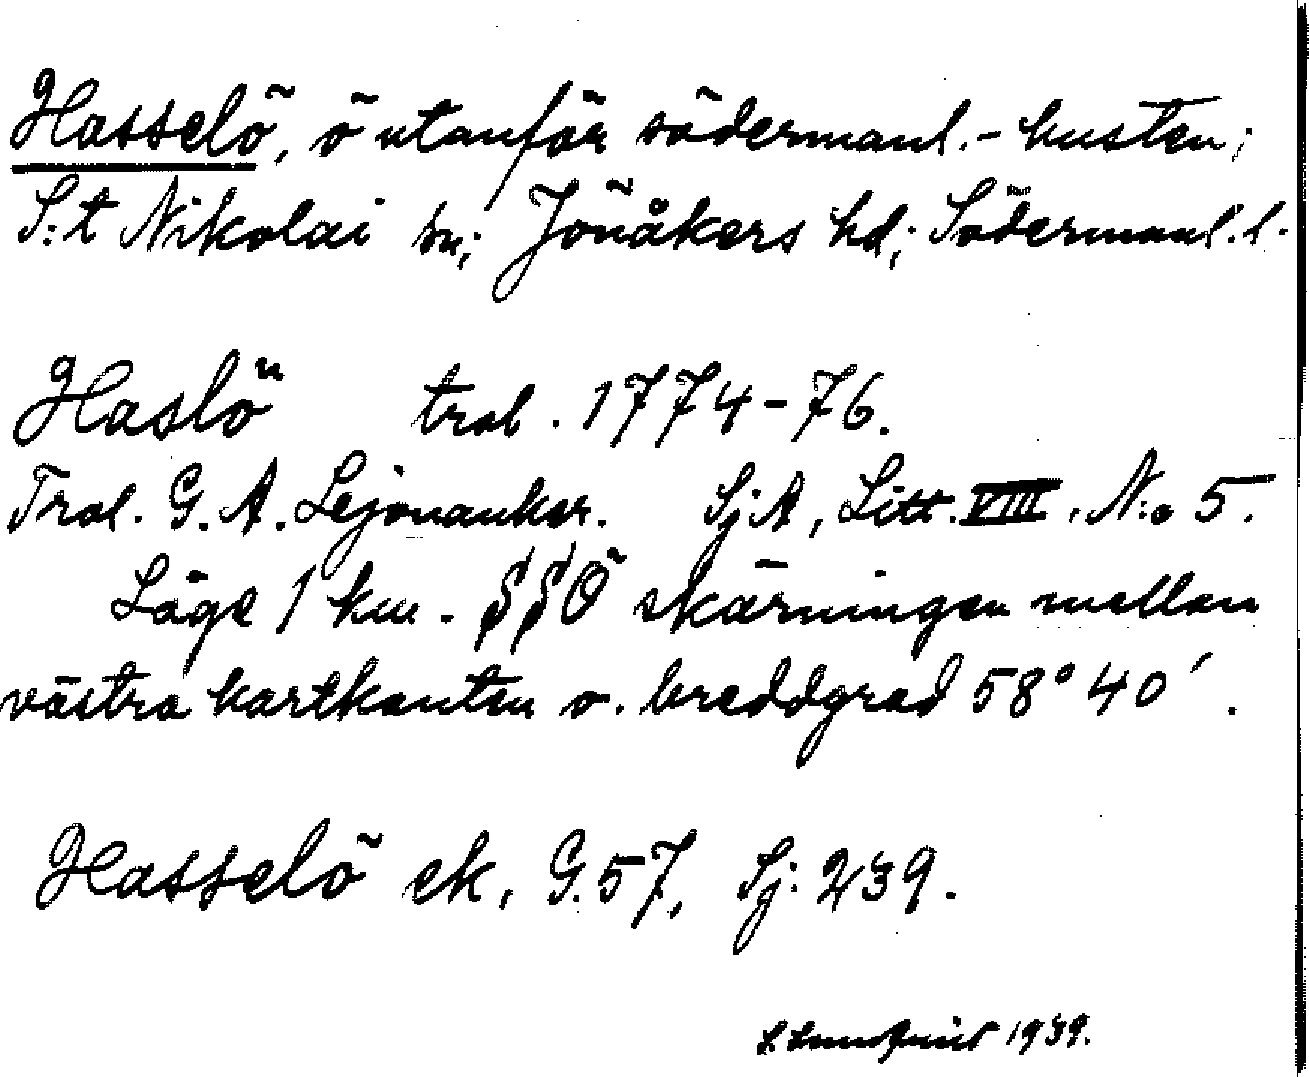 Hasselö, ö utanför södermanl.-kusten;
S:t Nikolai sn; Jönåkers hd; Södermanl. l.
Haslö trol. 1774-76.
Trol. G. A. Lejonanker. SjA, Litt. VIII, N:o 5.
Läge 1 km. SSÖ skärningen mellan
västra kartkanten o. breddgrad 58° 40′.
Hasselö ek, G. 57, Sj: 239.
Lundquist 1939.